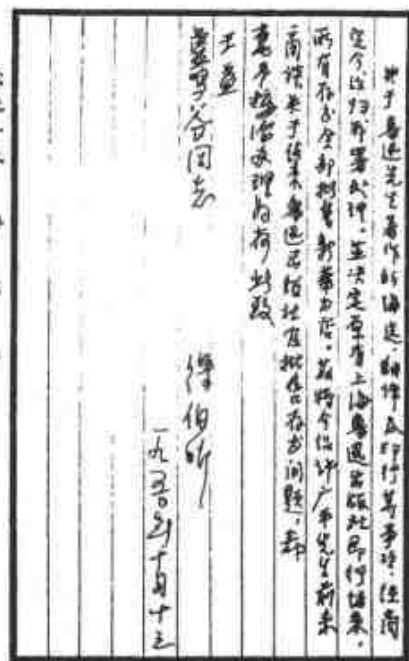 关于鲁迅先生著作的编选、翻译及印行等事项，经商
定今后归我署处理。并决定原有上海鲁迅出版社即行结束，
所有存书全部批售新华书店。兹特介绍许广平先生前来
商谈关于结束鲁迅出版社及批售存书问题，希
惠予接洽办理为荷 此致
王益
卢鸣谷同志
徐伯昕
一九五〇年十月十三